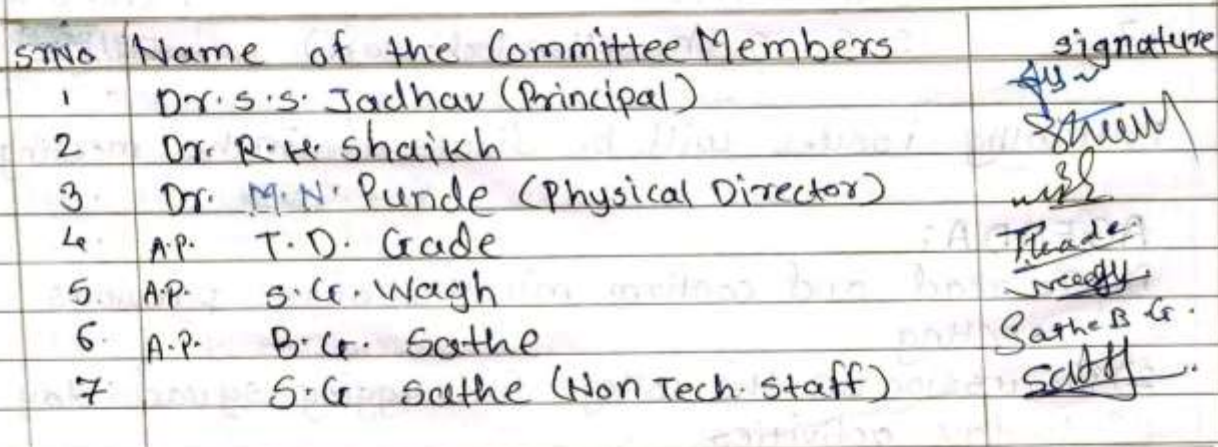 Sr.No Name of the Committee Members signature
1 Dr. S.S. Jadhav (Principal)
2 Dr. R.H. Shaikh
3 Dr. M.N. Punde (Physical Director)
4 A.P. T.D. Gade
5. A.P. S.G. Wagh
6. A.P. B.G. Sathe Sathe B G.
7 S.G Sathe (Non Tech. Staff)